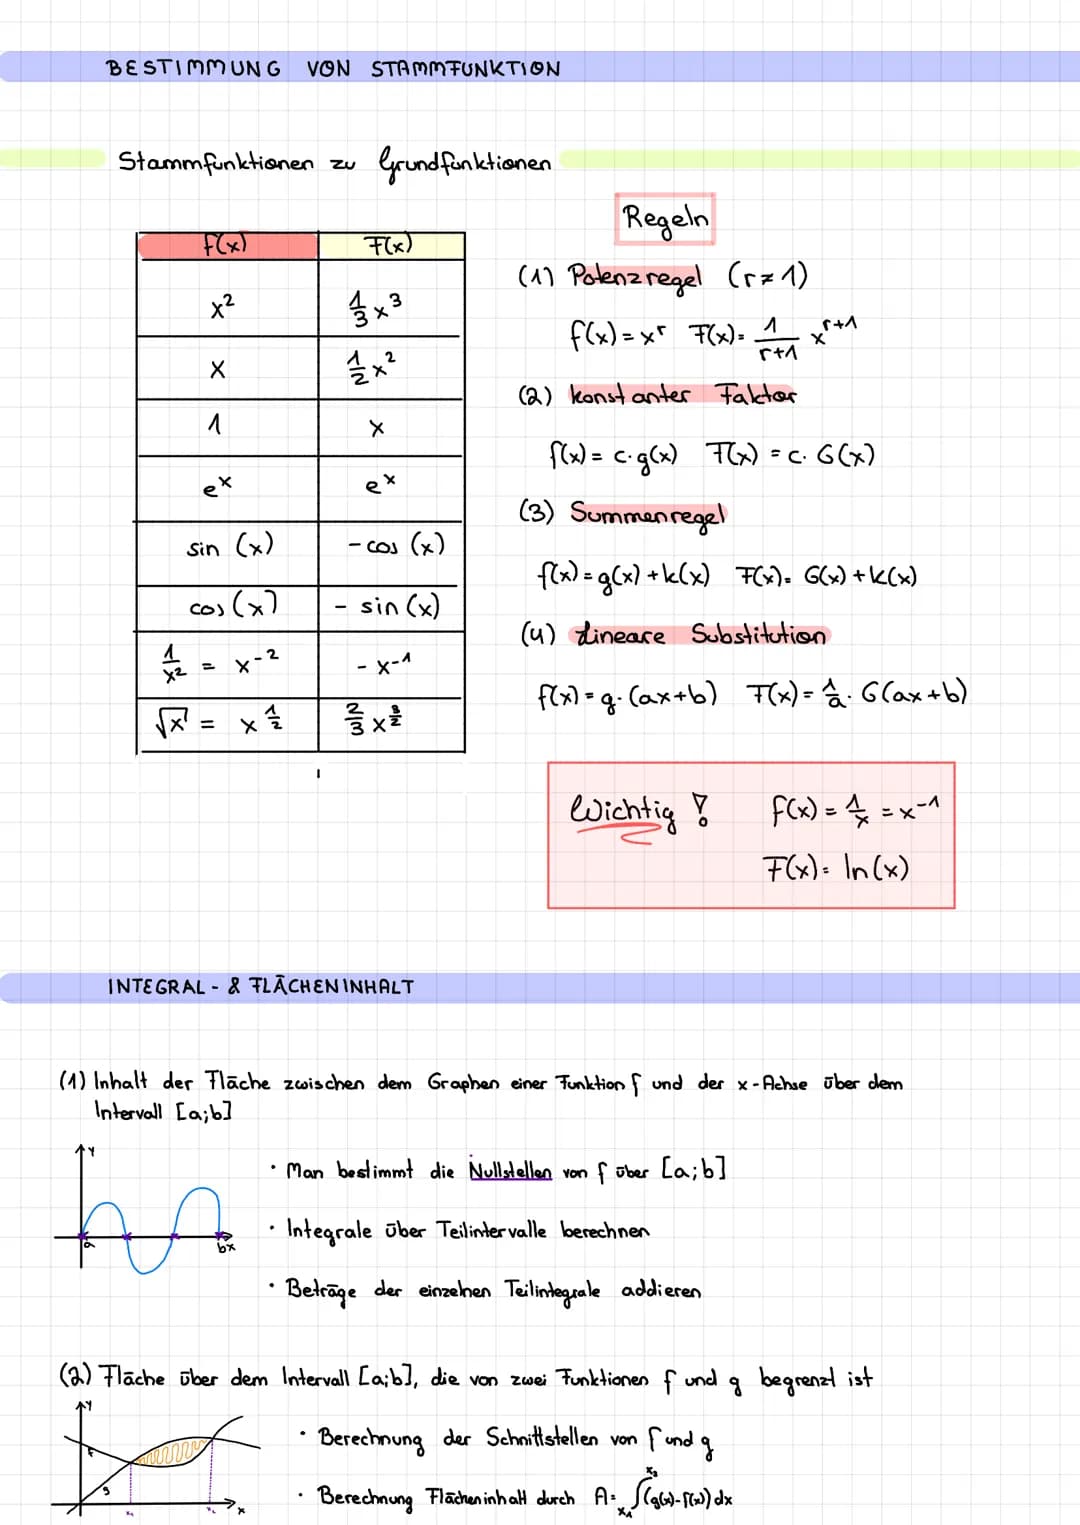 BESTIMMUNG VON STAMMFUNKTION
Stammfunktionen zu Grundfunktionen
f(x) F(x)
x² 1/3 x³
x 1/2 x²
1 x
eˣ eˣ
sin (x) - cos (x)
cos (x) - sin (x)
1/x² = x⁻² - x⁻¹
√x = x^(1/2) 2/3 x^(3/2)
Regeln
(1) Potenzregel (r≠1)
f(x) = xʳ F(x) = 1/(r+1) x^(r+1)
(2) konstanter Faktor
f(x) = c·g(x) F(x) = c·G(x)
(3) Summenregel
f(x) = g(x) + k(x) F(x) = G(x) + K(x)
(4) Lineare Substitution
f(x) = g·(ax+b) F(x) = 1/a · G(ax+b)
Wichtig! f(x) = 1/x = x⁻¹
F(x) = ln(x)
INTEGRAL- & FLÄCHENINHALT
(1) Inhalt der Fläche zwischen dem Graphen einer Funktion f und der x-Achse über dem
Intervall [a;b]
y
a
b x
· Man bestimmt die Nullstellen von f über [a;b]
· Integrale über Teilintervalle berechnen
· Beträge der einzelnen Teilintegrale addieren
(2) Fläche über dem Intervall [a;b], die von zwei Funktionen f und g begrenzt ist
y
f
g
x₁ x₂ x
· Berechnung der Schnittstellen von f und g
· Berechnung Flächeninhalt durch A = ∫ₓ₁ˣ² (g(x)-f(x)) dx